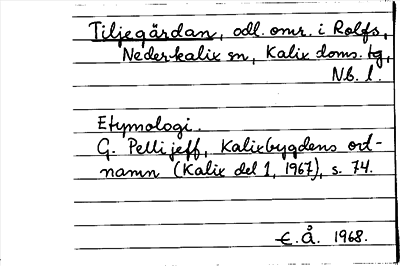 Tiljegärdan, odl. omr. i Rolfs,
Nederkalix sn, Kalix doms. tg,
Nb. l.
Etymologi.
G. Pellijeff, Kalixbygdens ord-
namn (Kalix del 1, 1967), s. 74.
E. Å. 1968.